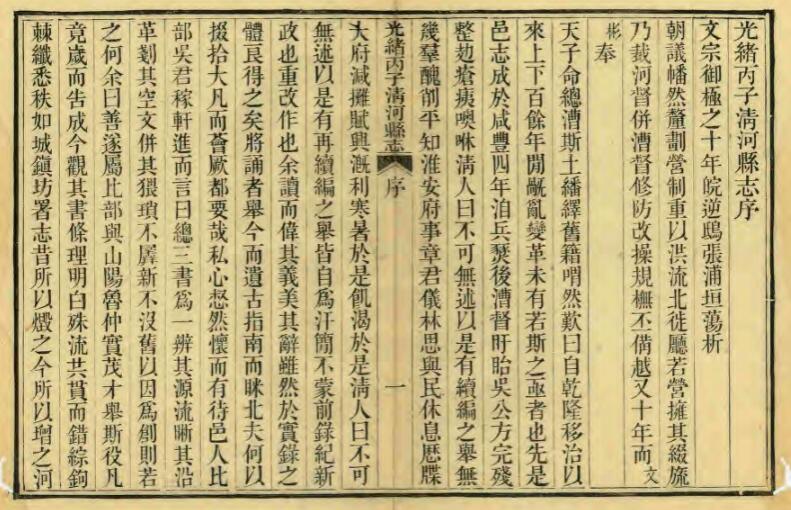 光緒丙子清河縣志序
文宗御極之十年皖逆鴟張浦垣蕩析
朝議幡然釐劃營制重以洪流北徙廳若營擁其綴旒
乃裁河督併漕督修防改操規橅丕備越又十年而文
彬奉
天子命總漕斯土繙繹舊籍喟然歎曰自乾隆移治以
來上下百餘年閒飜亂變革未有若斯之亟者也先是
邑志成於咸豐四年洎兵燹後漕督盱眙吳公方完殘
整廢瘡痍噢咻清人曰不可無述以是有續編之舉無
幾羣醜削平知淮安府事章君儀林思與民休息歷牒
光緒丙子清河縣志 序 一
大府減攤賦興漑利寒暑於是飢渴於是淸人曰不可
無述以是有再續編之舉皆自為汗簡不蒙前錄紀新
政也重改作也余讀而偉其義美其辭雖然於實錄之
體良得之矣將誦者舉今而遺古指南而眯北夫何以
掇拾大凡而薈厥都要哉私心惄然懷而有待邑人比
部吳君稼軒進而言曰總三書爲一辨其源流晰其沿
革剗其空文併其猥瑣不羼新不沒舊以因爲創則若
之何余曰善遂屬比部與山陽魯仲實茂才舉斯役凡
竟歲而告成今觀其書條理明白殊流共貫而錯綜鉤
棘纖悉秩如城鎭坊署志昔所以燬之今所以增之河